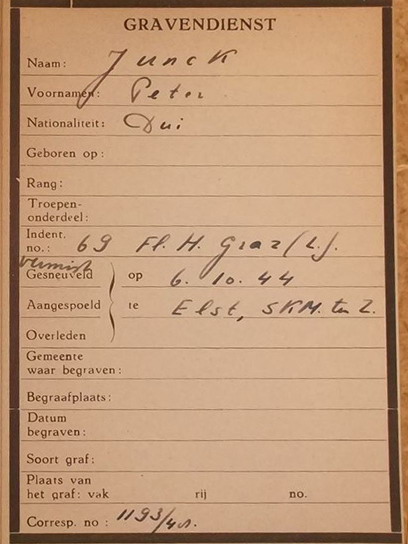 GRAVENDIENST
Naam: Junck
Voornamen: Peter
Nationaliteit: Dui
Geboren op:
Rang:
Troepen-
onderdeel:
Indent.
no.: 69 Fl. H. Graz (L).
vermist
Gesneuveld op 6. 10. 44
Aangespoeld te Elst, 5KM. ten Z.
Overleden
Gemeente
waar begraven:
Begraafplaats:
Datum
begraven:
Soort graf:
Plaats van
het graf: vak rij no.
Corresp. no: 1193/